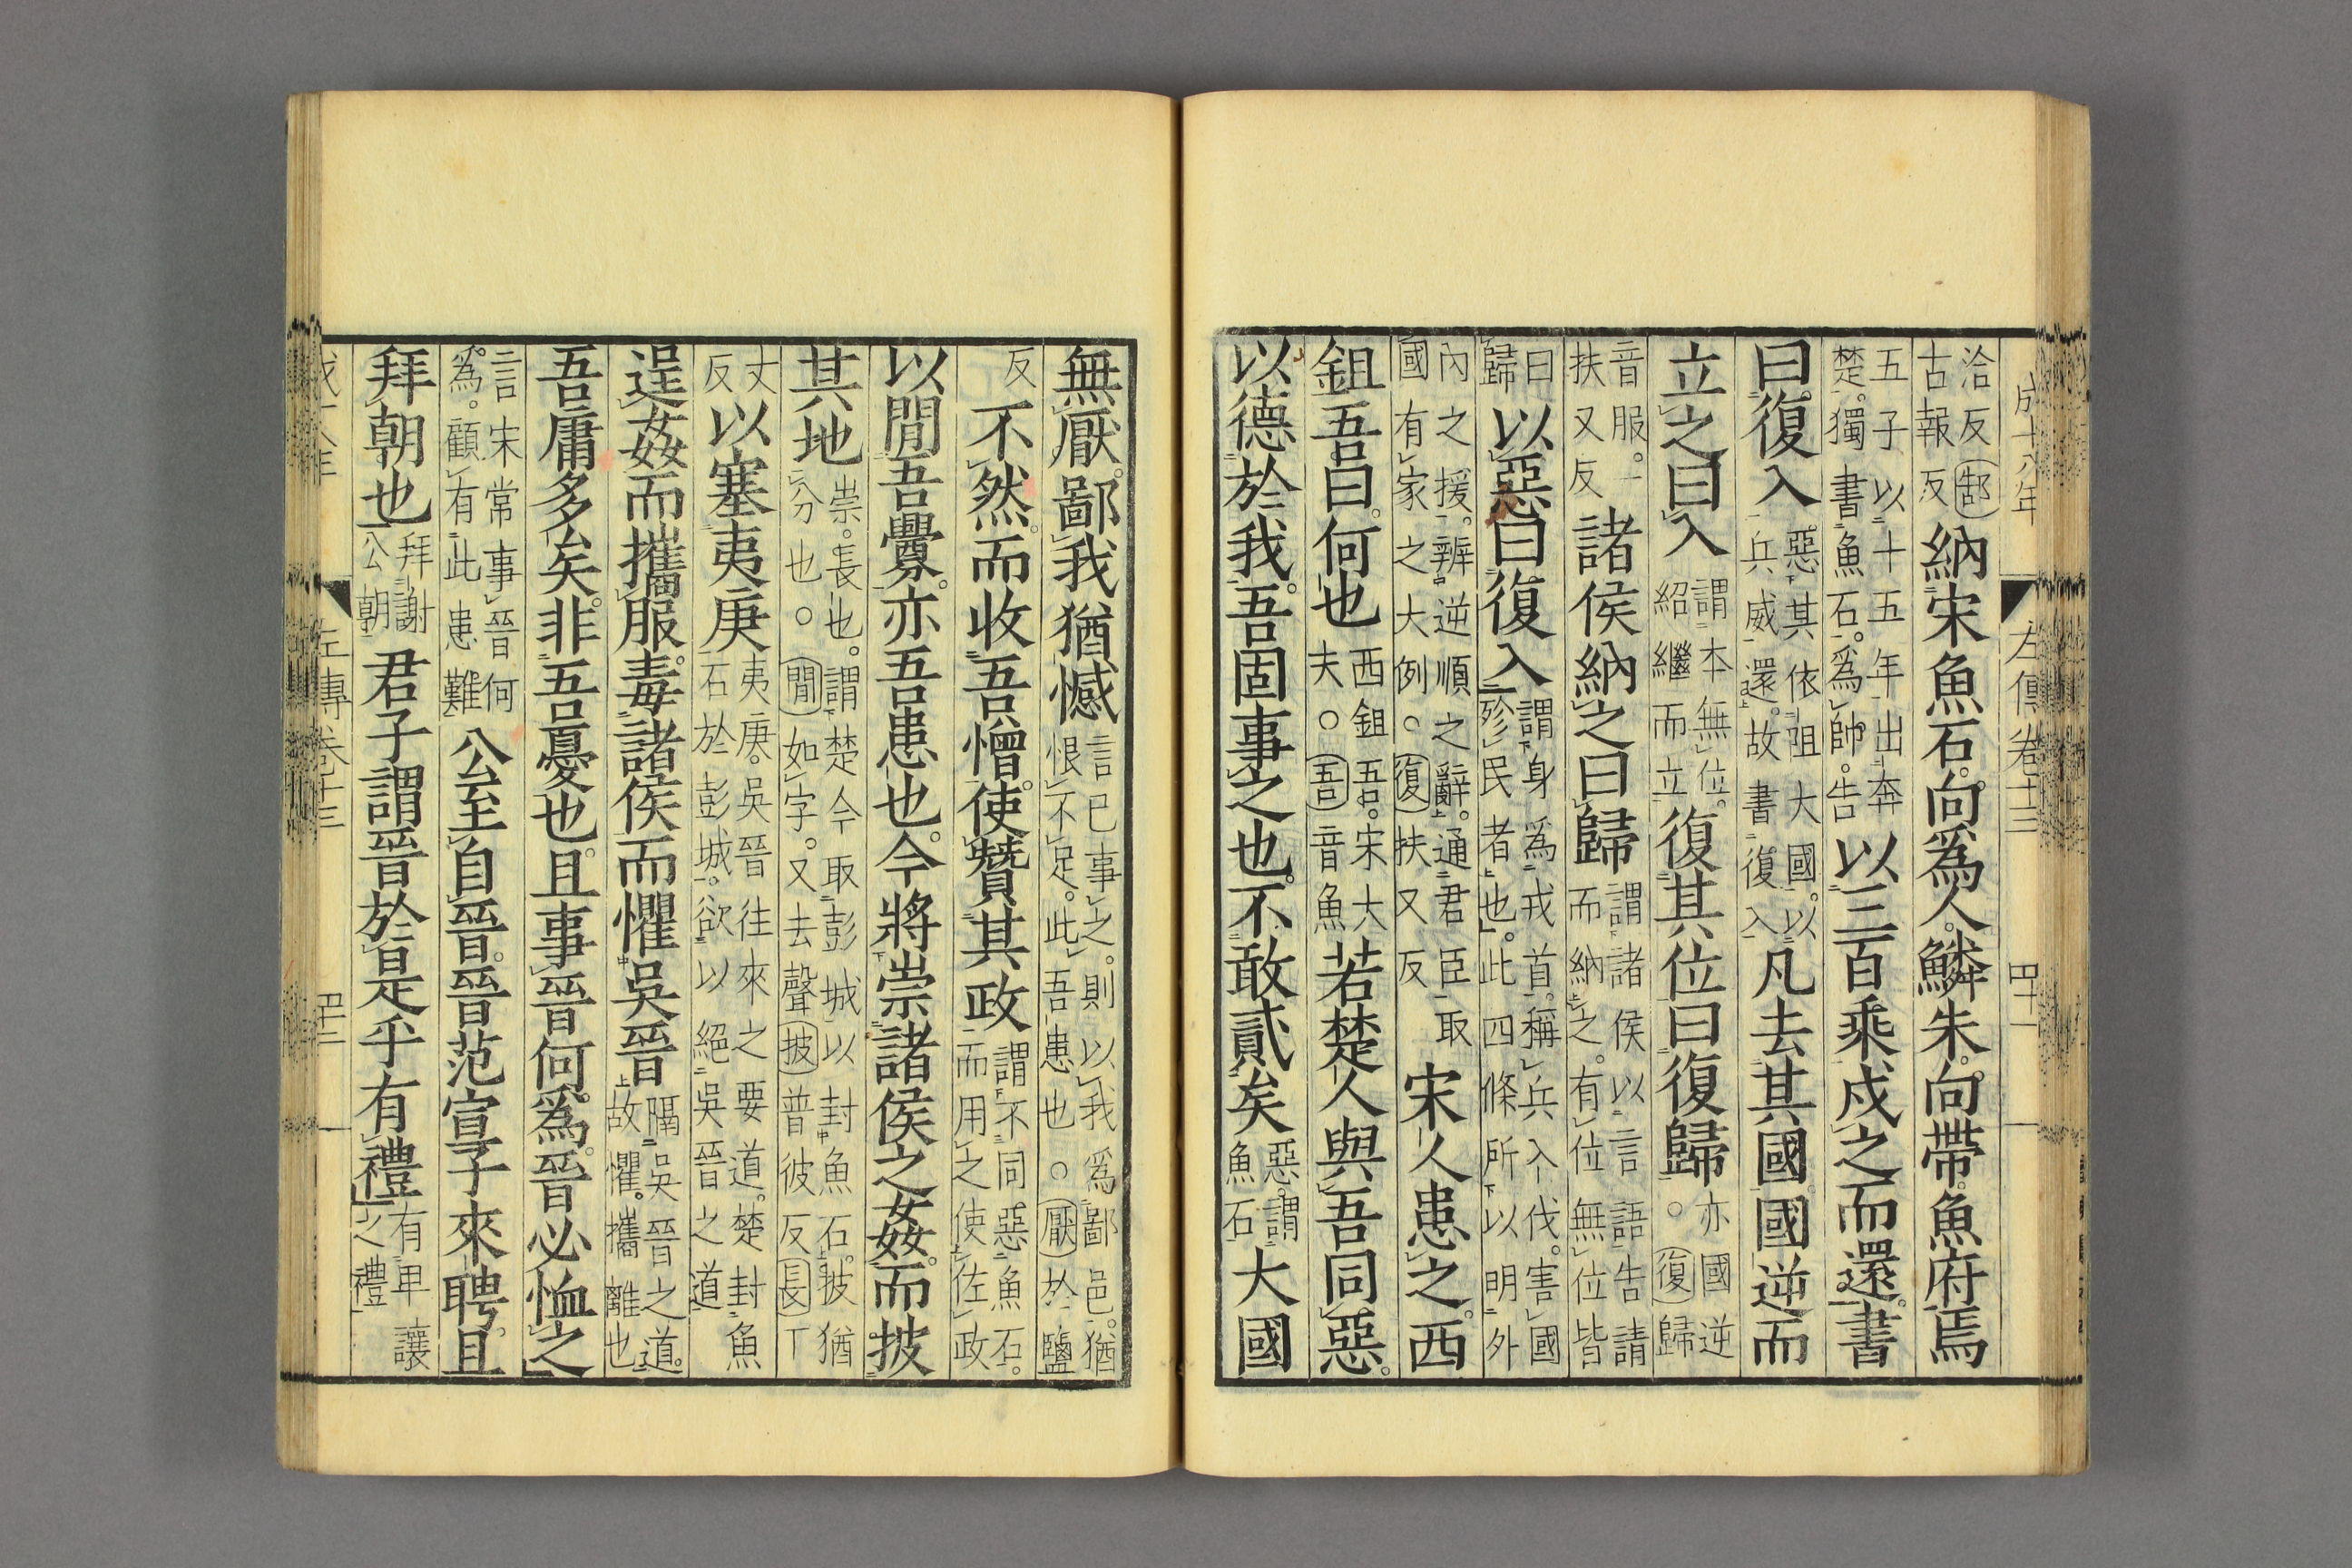 成十八年 左傳卷十三 四十一
洽反郜古報反納宋魚石。向爲人。鱗朱。向帶。魚府焉
五子以十五年出奔楚。獨書魚石。爲帥。告以三百乘戍之而還。書
曰復入惡其依阻大國。以兵威還。故書復入凡去其國國逆而
立之曰入謂本無位。紹繼而立復其位曰復歸亦國逆○復歸
音服。一扶又反諸侯納之曰歸謂諸侯以言語告請而納之。有位無位皆
曰歸以惡曰復入謂身爲戎首。稱兵入伐。害國殄民者也。此四條所以明外
內之援。辨逆順之辭。通君臣取國有家之大例○復扶又反宋人患之。西
鉏吾曰。何也西鉏吾。宋大夫○吾音魚若楚人與吾同惡。
以德於我。吾固事之也。不敢貳矣惡。謂魚石大國
無厭。鄙我猶憾言己事之。則以我爲鄙邑。猶恨不足。此吾患也○厭於鹽
反不然。而收吾憎。使贊其政謂不同。惡魚石。而用之使佐政
以閒吾釁。亦吾患也。今將崇諸侯之姦。而披
其地崇。長也。謂楚今取彭城以封魚石。披猶分也○閒如字。又去聲披普彼反長丁
丈反以塞夷庚夷庚。吳晉往來之要道。楚封魚石於彭城。欲以絕吳晉之道
逞姦而攜服。毒諸侯而懼吳晉隔吳晉之道。故懼。攜離也
吾庸多矣。非吾憂也。且事晉何爲。晉必恤之
言宋常事晉何爲。顧有此患難公至自晉。晉范宣子來聘。且
拜朝也拜謝公朝君子謂晉於是乎有禮有卑讓之禮
左專卷十三 四十二